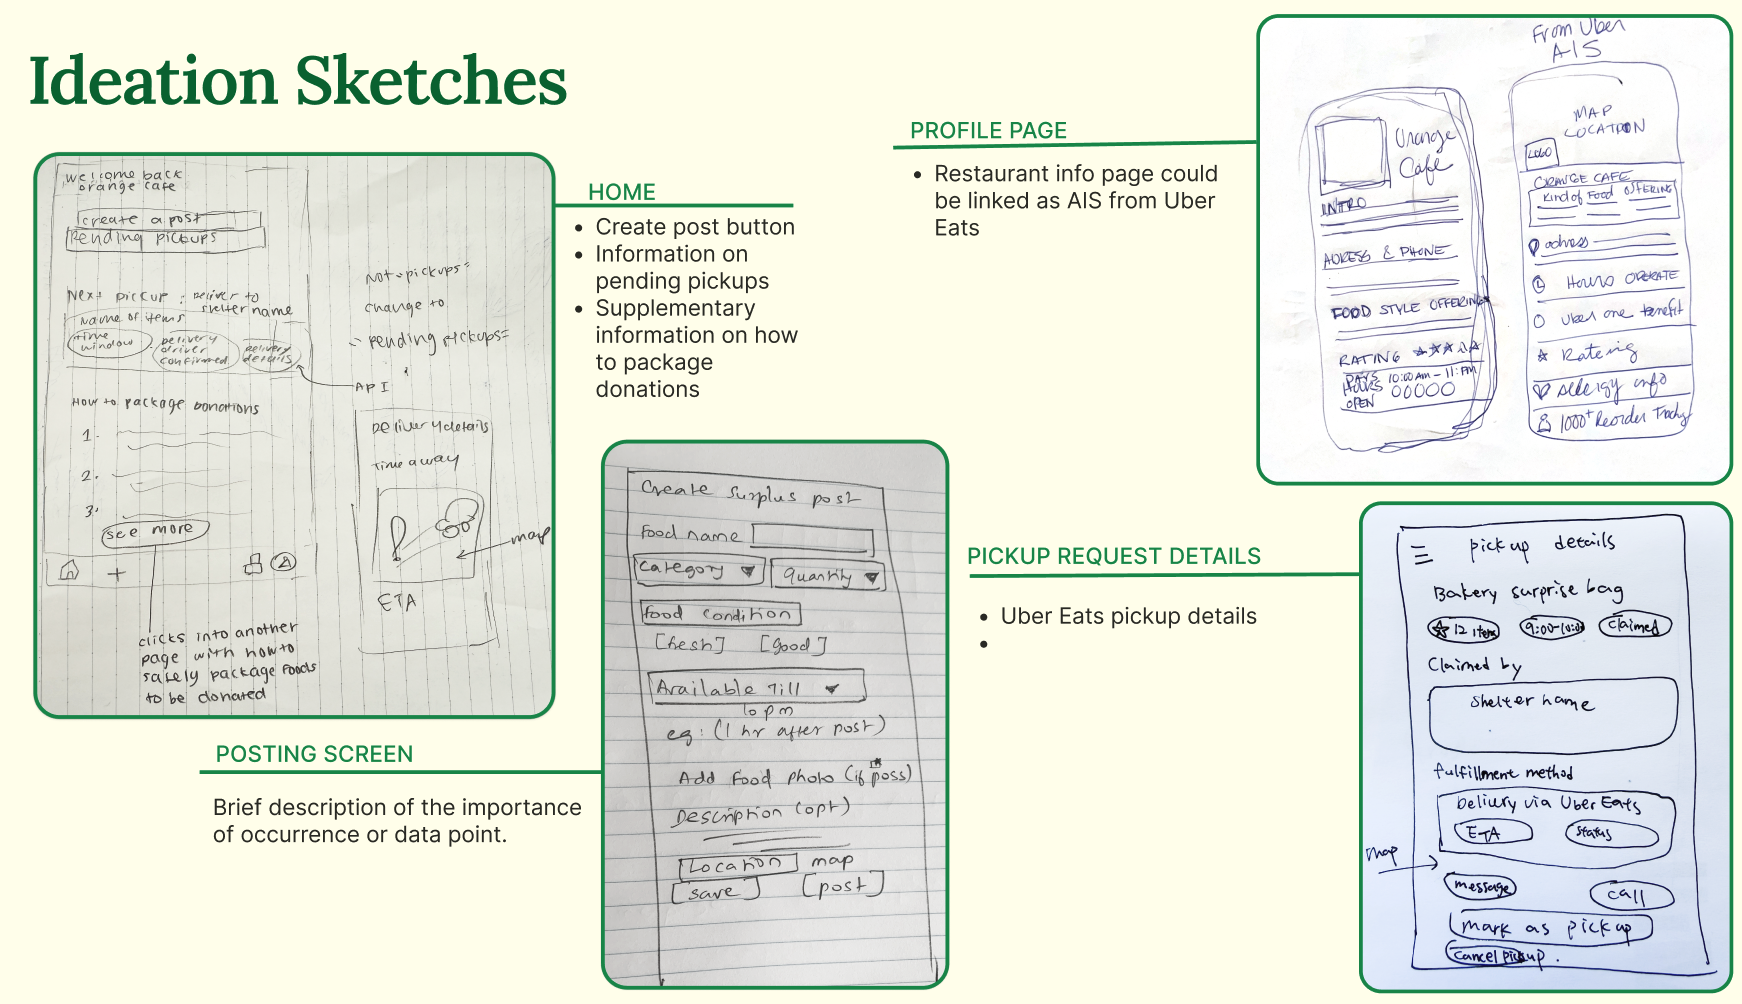 Ideation Sketches
welcome back
orange cafe
create a post
Pending pickups
Next pickup : Deliver to
shelter name
Name of items
time
window
delivery
driver
confirmed
delivery
details
API
How to package Donations
1.
2.
3.
see more
+
clicks into another
page with how to
safely package foods
to be donated
Not "pickups"
change to
"pending pickups"
Delivery details
time away
map
ETA
HOME
• Create post button
• Information on
pending pickups
• Supplementary
information on how
to package
donations
POSTING SCREEN
Brief description of the importance
of occurrence or data point.
Create surplus post
Food name
Category
Quantity
food condition
[fresh] [good]
Available Till
10 pm
eg: (1 hr after post)
Add Food Photo (if poss)
Description (opt)
Location map
[save] [post]
PROFILE PAGE
• Restaurant info page could
be linked as AIS from Uber
Eats
Orange
Cafe
INTRO
ADRESS & PHONE
FOOD STYLE OFFERING
RATING
DAYS 10:00 AM - 11: PM
HOURS
OPEN
From Uber
AIS
MAP
LOCATION
LOGO
ORANGE CAFE
Kind of Food OFFERING
adress
Hours OPERATE
Uber one benefit
Ratering
allergy info
1000+ Reorder
PICKUP REQUEST DETAILS
• Uber Eats pickup details
•
pick up details
Bakery surprise bag
12 items
9:00-10:00
claimed
Claimed by
Shelter name
fulfillment method
Delivery via Uber Eats
ETA
status
map
message
call
mark as pickup
cancel pickup.